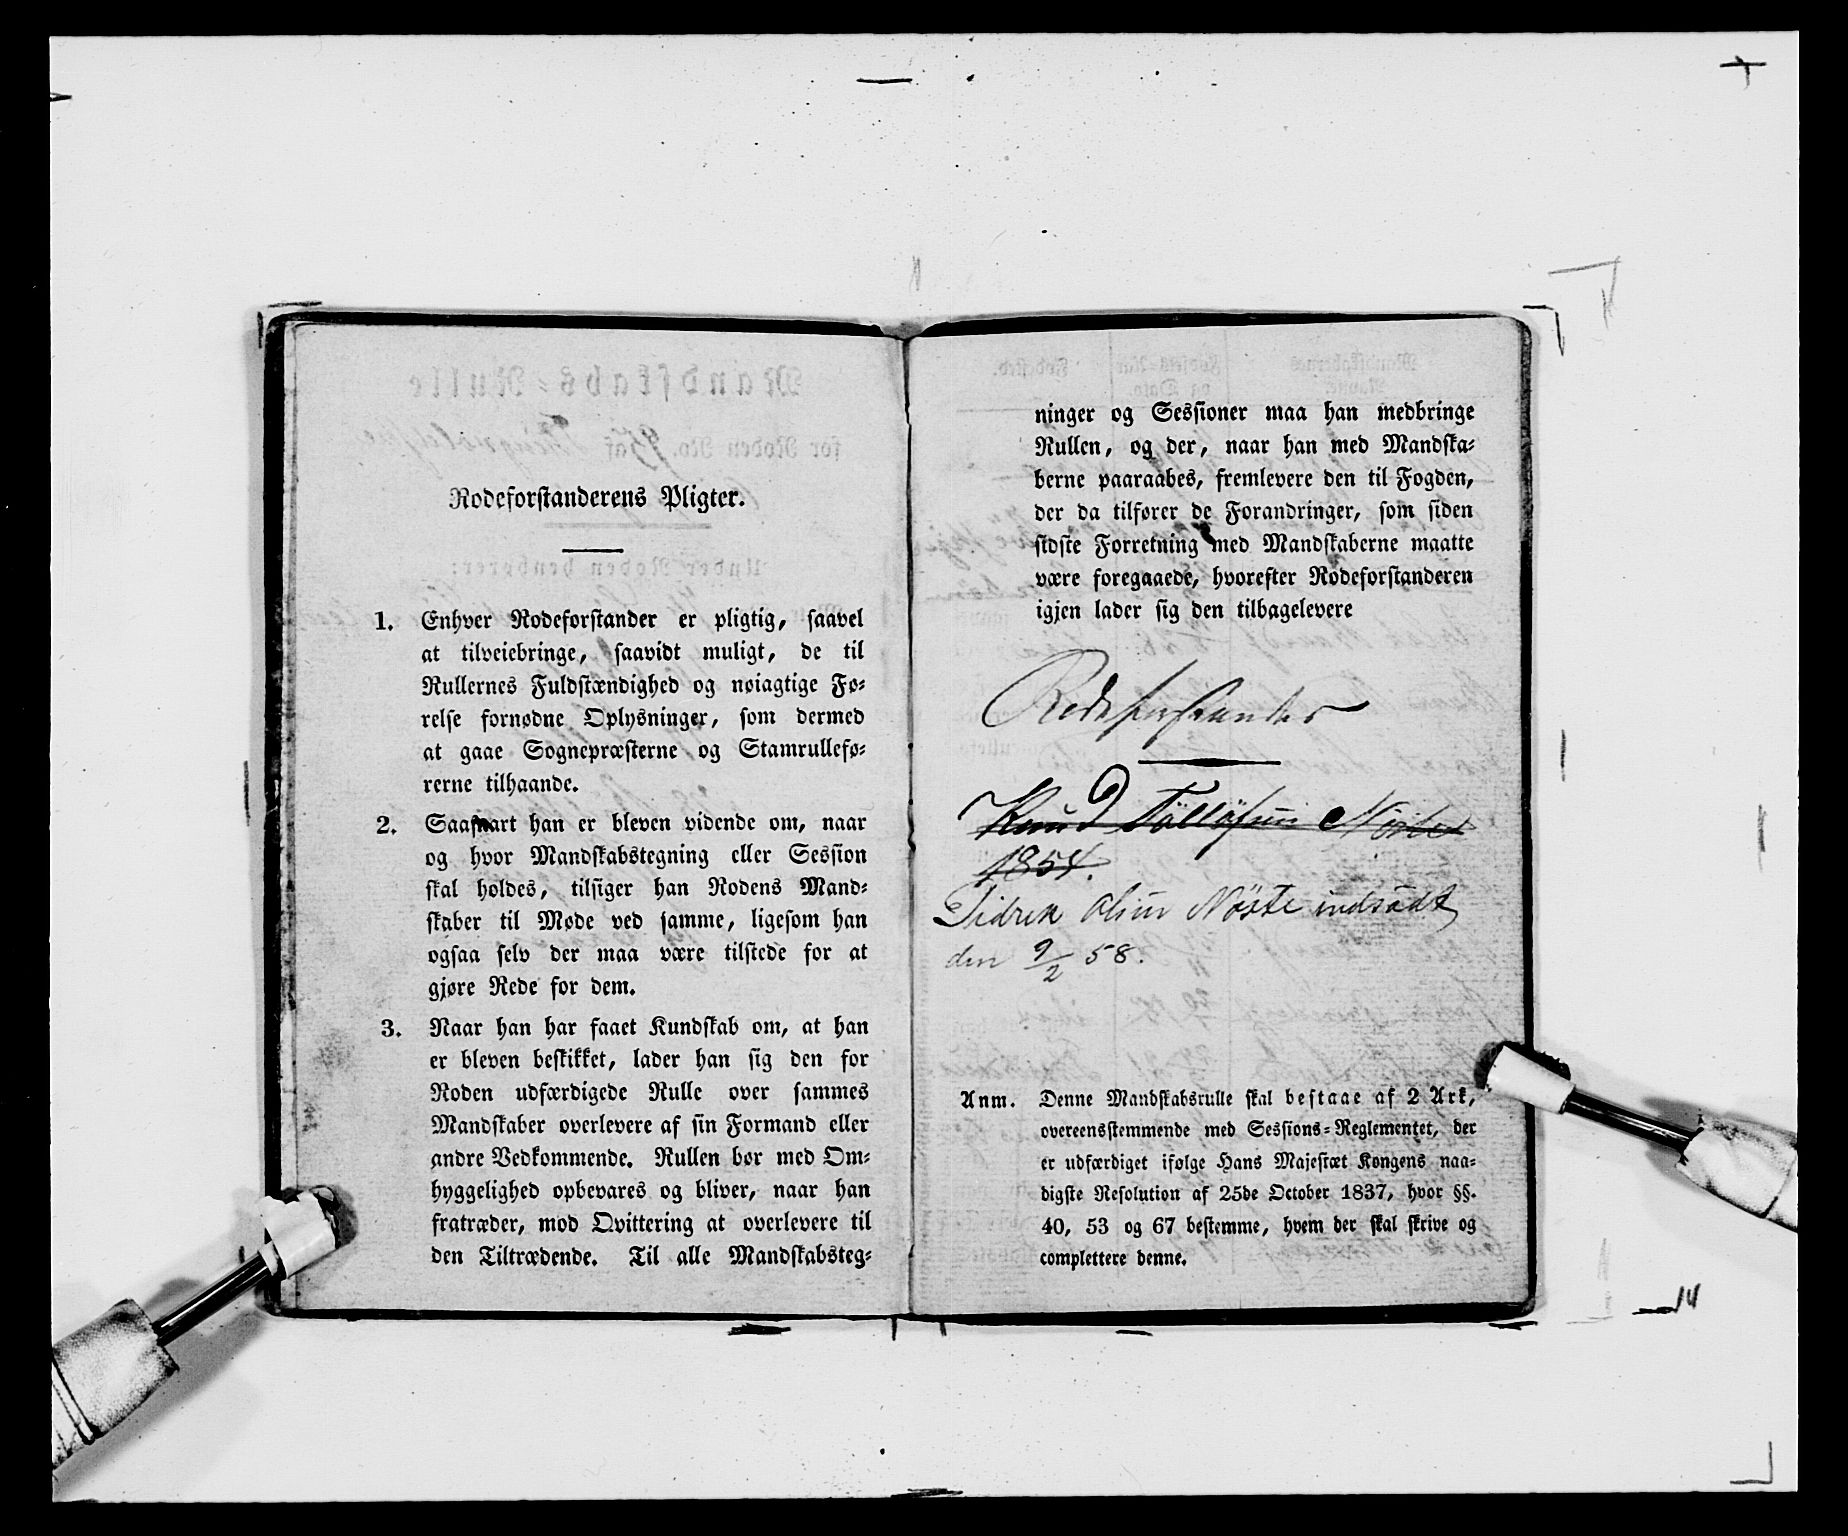 Rodeforstanderens Pligter.
1. Enhver Rodeforstander er pligtig, saavel
at tilveiebringe, saavidt muligt, de til
Rullernes Fuldstændighed og nøiagtige Fø-
relse fornødne Oplysninger, som dermed
at gaae Sognepræsterne og Stamrullefø-
rerne tilhaande.
2. Saasnart han er bleven vidende om, naar
og hvor Mandskabstegning eller Session
skal holdes, tilsiger han Rodens Mand-
skaber til Møde ved samme, ligesom han
ogsaa selv der maa være tilstede for at
gjøre Rede for dem.
3. Naar han har faaet Kundskab om, at han
er bleven beskikket, lader han sig den for
Roden udfærdigede Rulle over sammes
Mandskaber overlevere af sin Formand eller
andre Vedkommende. Rullen bør med Om-
hyggelighed opbevares og bliver, naar han
fratræder, mod Qvittering at overlevere til
den Tiltrædende. Til alle Mandskabsteg-
ninger og Sessioner maa han medbringe
Rullen, og der, naar han med Mandska-
berne paaraabes, fremlevere den til Fogden,
der da tilfører de Forandringer, som siden
sidste Forretning med Mandskaberne maatte
være foregaaede, hvorefter Rodeforstanderen
igjen lader sig den tilbagelevere
Rodeforstander
Knud
1854.
Nöste indsadt
den 9/2 58.
Anm. Denne Mandskabsrulle skal bestaae af 2 Ark,
overeensstemmende med Sessions-Reglementet, der
er udfærdiget ifølge Hans Majestæt Kongens naa-
digste Resolution af 25de October 1837, hvor §§.
40, 53 og 67 bestemme, hvem der skal skrive og
complettere denne.
14